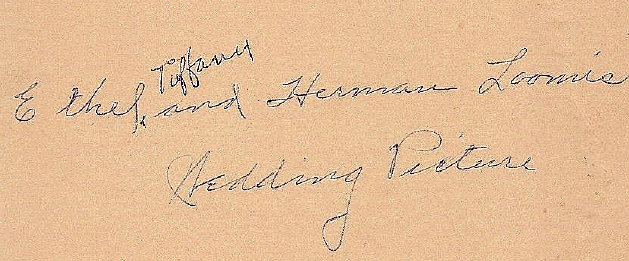 Ethel Tiffany and Herman Loomis
Wedding Picture